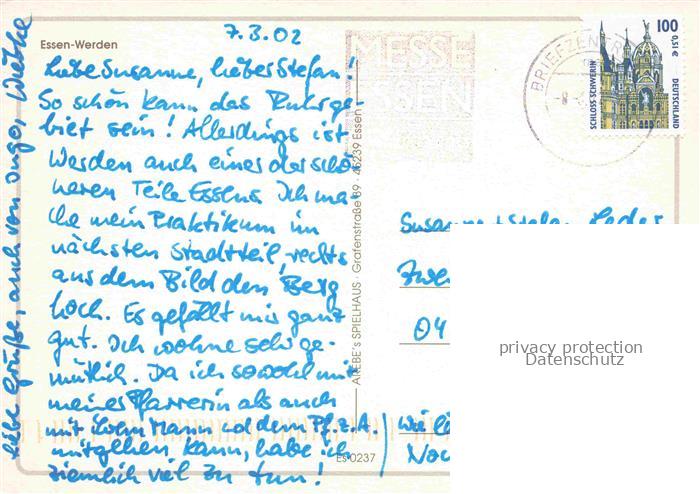 7.3.02
Essen-Werden
Liebe Susanne, lieber Stefan!
So schön kann das Ruhrge-
biet sein! Allerdings ist
Werden auch einer der schö-
neren Teile Essens. Ich ma-
che mein Praktikum im
nächsten Stadtteil, rechts
aus dem Bild den Berg
hoch. Es gefällt mir ganz
gut. Ich wohne sehr ge-
mütlich. Da ich sowohl mit
meiner Pfarrerin als auch
mit ihrem Mann und dem Pf.z.A.
mitgehen kann, habe ich
ziemlich viel zu tun!
liebe Grüße, auch von Ingo, Wiebke
AREBE's SPIELHAUS · Grafenstraße 39 · 45239 Essen
ES 0237
MESSE
ESSEN
BRIEFZENTRUM
100
0,51 €
SCHLOSS SCHWERIN
DEUTSCHLAND
Susanne + Stefan
04
privacy protection
Datenschutz